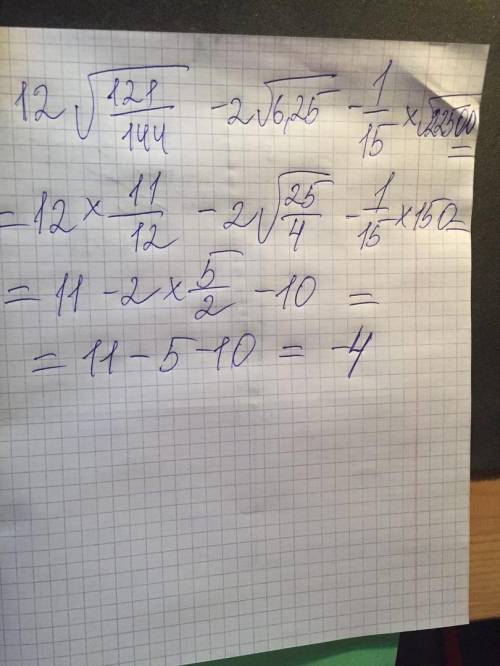 12√(121/144) - 2√6,25 - 1/15 × √22500 =
= 12 × 11/12 - 2√(25/4) - 1/15 × 150 =
= 11 - 2 × 5/2 - 10 =
= 11 - 5 - 10 = -4